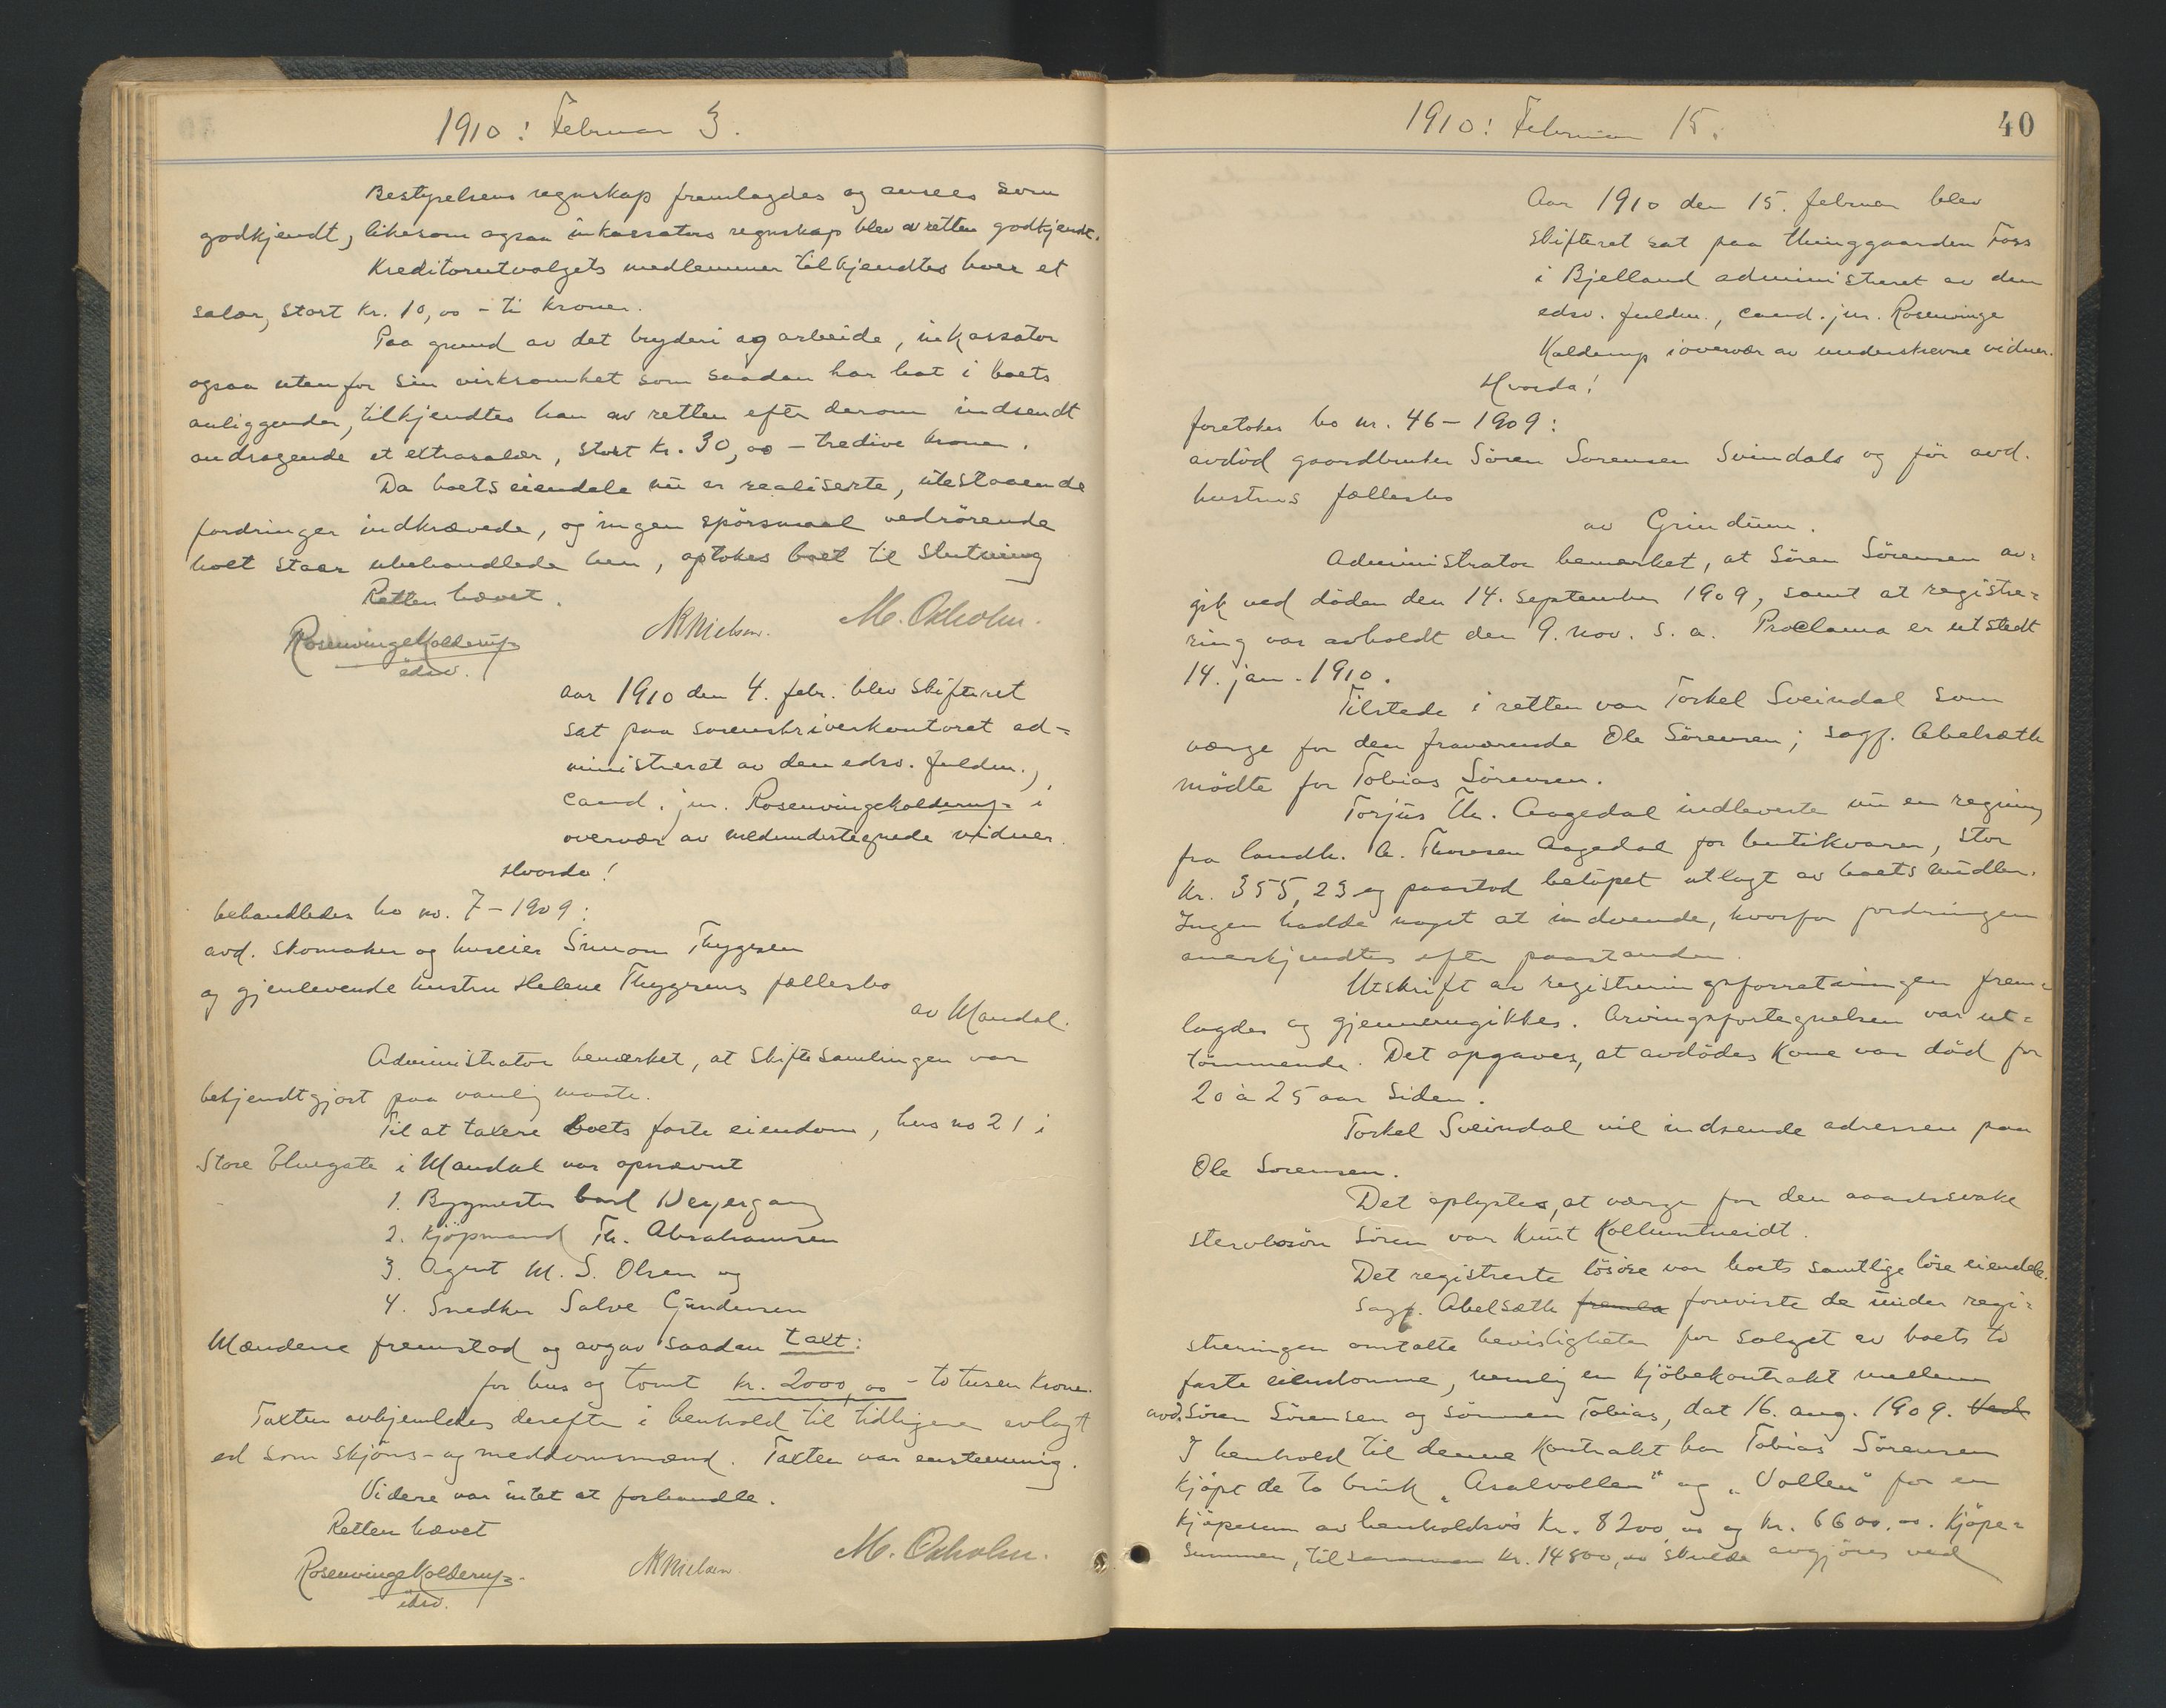 1910: Februar 3.
Bestyrelsens regnskap fremlagdes og ansees som
godkjendt, likesom ogsaa inkassators regnskap blev av retten godkjendt.
Kreditorutvalgets medlemmer tilkjendtes hver et
salær, stort kr. 10,00 - ti kroner.
Paa grund av det bryderi og arbeide, inkassator
ogsaa utenfor sin virksomhet som saadan har hat i boets
anliggender, tilkjendtes han av retten efter derom indsendt
andragende et extrasalær, stort kr. 30,00 - tredive kroner.
Da boets eiendele nu er realiserte, utestaaende
fordringer indkrævede, og ingen spörsmaal vedrörende
boet staar ubehandlede hen, optokes boet til slutning
Retten hævet.
Rosenvinge Kolderup
edsv.
NNielsen.
M. Oxholm.
Aar 1910 den 4. febr. blev skifteret
sat paa sorenskriverkontoret ad=
ministreret av den edsv. fuldm.,
cand. jur. Rosenvinge Kolderup i
overvær av medundertegnede vidner.
Hvorda!
behandledes bo no. 7 - 1909:
avd. skomaker og huseier Simon Thygesen
og gjenlevende hustru Helene Thygesens fællesbo
av Mandal.
Administrator bemerket, at skiftesamlingen var
bekjendtgjort paa vanlig maate.
Til at taxere boets faste eiendom, hus no 21 i
Store Elvegate i Mandal var opnævnt
1. Bygmester Carl Weyergang
2. Kjöpmand Th. Abrahamsen
3. Agent M. S. Olsen og
4. Snedker Salve Gundersen
Mændene fremstod og avgav saadan taxt:
for hus og tomt kr. 2000,00 - to tusen kroner.
Taxten avhjemledes derefter i henhold til tidligere avlagt
ed som skjöns- og meddomsmænd. Taxten var enstemmig.
Videre var intet at forhandle.
Retten hævet
Rosenvinge Kolderup
edsv.
NNielsen.
M. Oxholm.
1910: Februar 15.
40
Aar 1910 den 15. februar blev
skifteret sat paa thinggaarden Foss
i Bjelland administreret av den
edsv. fuldm., cand. jur. Rosenvinge
Kolderup i overvær av underskrevne vidner.
Hvorda!
foretokes bo nr. 46 - 1909:
avdöd gaardbruker Sören Sorensen Svindals og för avd.
hustrus fællesbo
av Grindum.
Administrator bemærket, at Sören Sörensen av=
gik ved döden den 14. september 1909, samt at registre=
ring var avholdt den 9. nov. s. a. Proclama er utstedt
14. jan. 1910.
Tilstede i retten var Torkel Sveindal som
værge for den fraværende Ole Sörensen; sagf. Abelsæth
mödte for Tobias Sörensen.
Torjus Th. Aagedal indleverte nu en regning
fra landh. A. Thoresen Aagedal for butikvarer, stor
kr. 355,23 og paastod belöpet utlagt av boets midler.
Ingen hadde noget at indvende, hvorfor fordringen
anerkjendtes efter paastanden.
Utskrift av registreringsforretningen frem=
lagdes og gjennemgikkes. Arvingsfortegnelsen var ut=
tömmende. Det opgaves, at avdödes kone var död for
20 à 25 aar siden.
Torkel Sveindal vil indsende adressen paa
Ole Sorensen.
Det oplystes, at værge for den aandssvake
stervbosön Sören var Knut
Det registrerte lösöre var boets samtlige löse eiendele.
Sagf. Abelsæth fremla foreviste de under regi=
streringen omtalte bevisligheter for salget av boets to
faste eiendomme, nemlig en kjöbekontrakt mellem
avd. Sören Sörensen og sönnen Tobias, dat 16. aug. 1909. Ved
I henhold til denne kontrakt har Tobias Sörensen
kjöpt de to bruk „Asalvollen" og „Vollen" for en
kjöpesum av henholdsvis kr. 8200,00 og kr. 6600,00. Kjöpe=
summen, tilsammen kr. 14800,00 skulde avgjöres ved